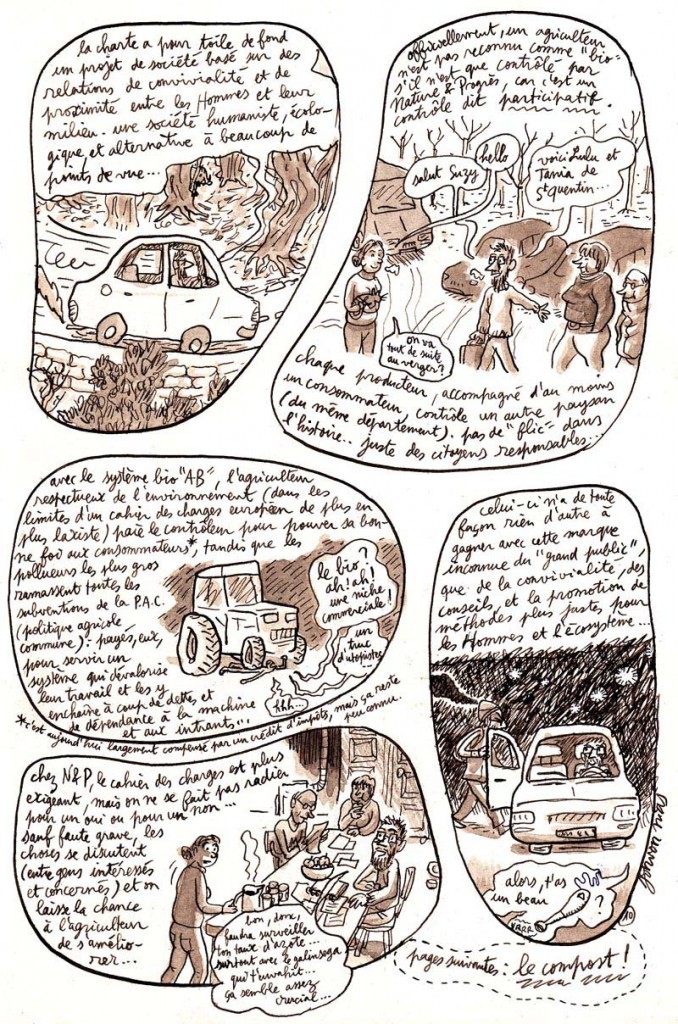 la charte a pour toile de fond
un projet de société basé sur des
relations de convivialité et de
proximité entre les Hommes et leur
milieu. une société humaniste, écolo-
gique, et alternative à beaucoup de
points de vue...
officiellement, un agriculteur
n'est pas reconnu comme "bio"
s'il n'est que contrôlé par
Nature & Progrès, car c'est un
contrôle dit participatif.
salut Suzy
hello
voici Lulu et
Tania de
St quentin...
on va
tout de suite
au verger?
chaque producteur, accompagné d'au moins
un consommateur, contrôle un autre paysan
(du même département). pas de "flic" dans
l'histoire.. juste des citoyens responsables...
avec le système bio "AB", l'agriculteur
respectueux de l'environnement (dans les
limites d'un cahier des charges européen de plus en
plus laxiste) paie le contrôleur pour prouver sa bon-
ne foi aux consommateurs*, tandis que les
pollueurs les plus gros
ramassent toutes les
subventions de la P.A.C.
(politique agricole
commune): payés, eux,
pour servir un
système qui dévalorise
leur travail et les y
enchaîne à coup de dettes et
de dépendance à la machine
et aux intrants...
le bio?
ah! ah!
une niche
commerciale!
un
truc
d'utopistes
khh...
*c'est aujourd'hui largement compensé par un crédit d'impôts, mais ça reste
peu connu.
celui-ci n'a de toute
façon rien d'autre à
gagner avec cette marque
inconnue du "grand public",
que de la convivialité, des
conseils, et la promotion de
méthodes plus justes pour
les Hommes et l'écosystème...
alors, t'as
un beau
?
10
chez N&P, le cahier des charges est plus
exigeant, mais on ne se fait pas radier
pour un oui ou pour un non...
sauf faute grave, les
choses se discutent
(entre gens intéressés
et concernés) et on
laisse la chance
à l'agriculteur
de s'amélio-
rer...
bon, donc,
faudra surveiller
ton taux d'azote...
surtout avec le galinsoga
qui t'envahit...
ça semble assez
crucial...
pages suivantes: le compost!